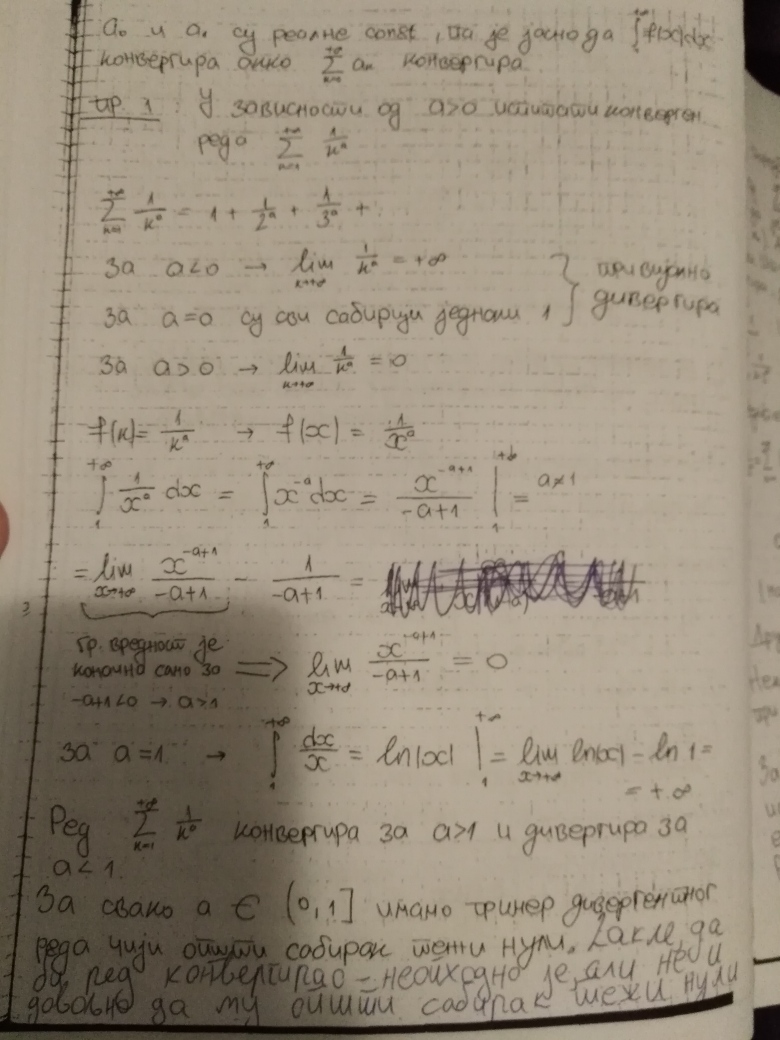 a₀ и a₁ су реалне const, па је јасно да ∫₁^{+∞} f(x)dx
конвергира акко ∑_{n=1}^{+∞} aₙ конвергира
пр. 1 : У зависности од a>0 испитати конверген.
реда ∑_{n=1}^{+∞} 1/n^a
∑_{n=1}^{+∞} 1/n^a = 1 + 1/2^a + 1/3^a +
За a<0 → lim_{n→+∞} 1/n^a = +∞ } тривијално
За a=0 су сви сабирци једнаки 1 } дивергира
За a>0 → lim_{n→+∞} 1/n^a = 0
f(n) = 1/n^a → f(x) = 1/x^a
∫₁^{+∞} 1/x^a dx = ∫₁^{+∞} x^{-a} dx = x^{-a+1}/(-a+1) |₁^{+∞} = a≠1
= lim_{x→+∞} x^{-a+1}/(-a+1) - 1/(-a+1) =
гр. вредност је
коначна само за ⇒ lim_{x→+∞} x^{-a+1}/(-a+1) = 0
-a+1<0 → a>1
За a=1 → ∫₁^{+∞} dx/x = ln|x| |₁^{+∞} = lim_{x→+∞} ln|x| - ln 1 =
= +∞
Ред ∑_{n=1}^{+∞} 1/n^a конвергира за a>1 и дивергира за
a<1.
За свако a ∈ (0,1] имамо пример дивергентног
реда чији општи сабирак тежи нули. Дакле, да
би ред конвергирао – неопходно је, али не и
довољно да му општи сабирак тежи нули